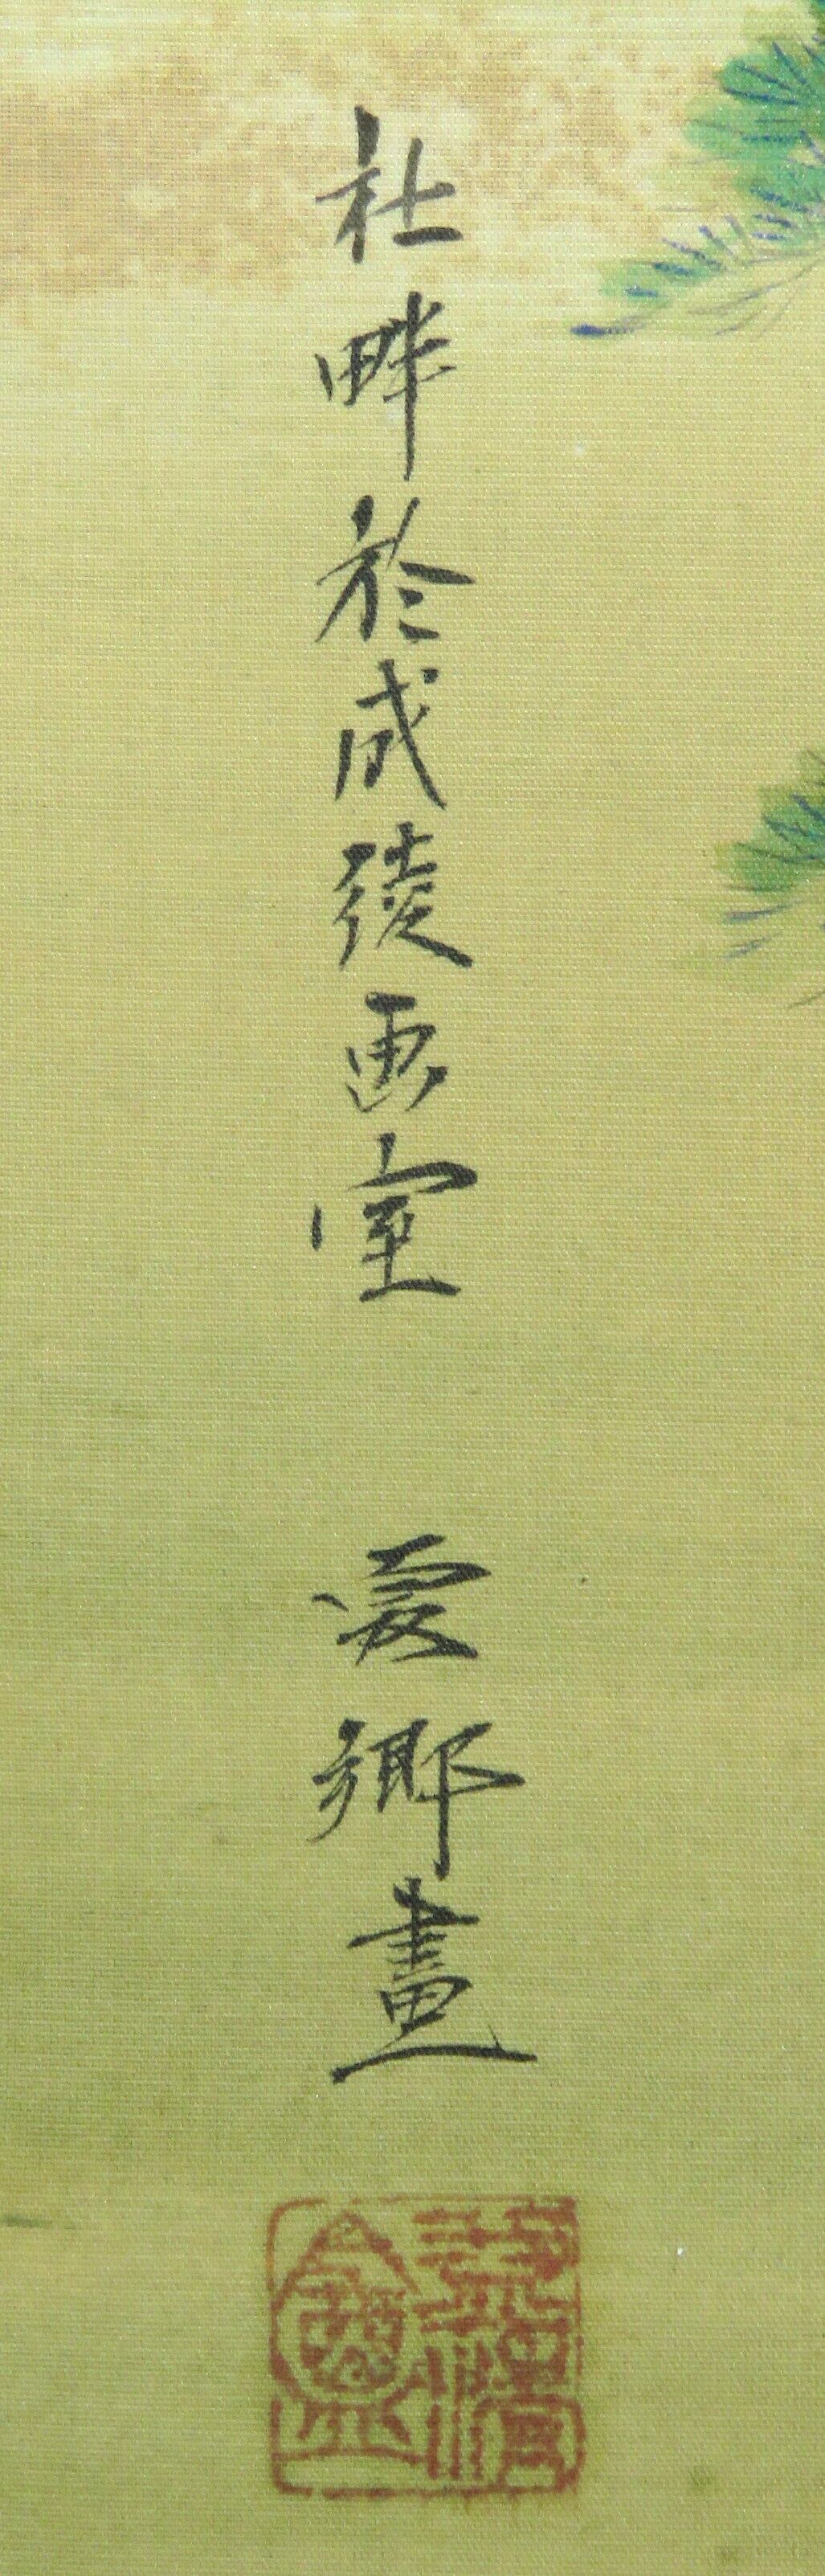 社畔於成徳画室 愛郷畫